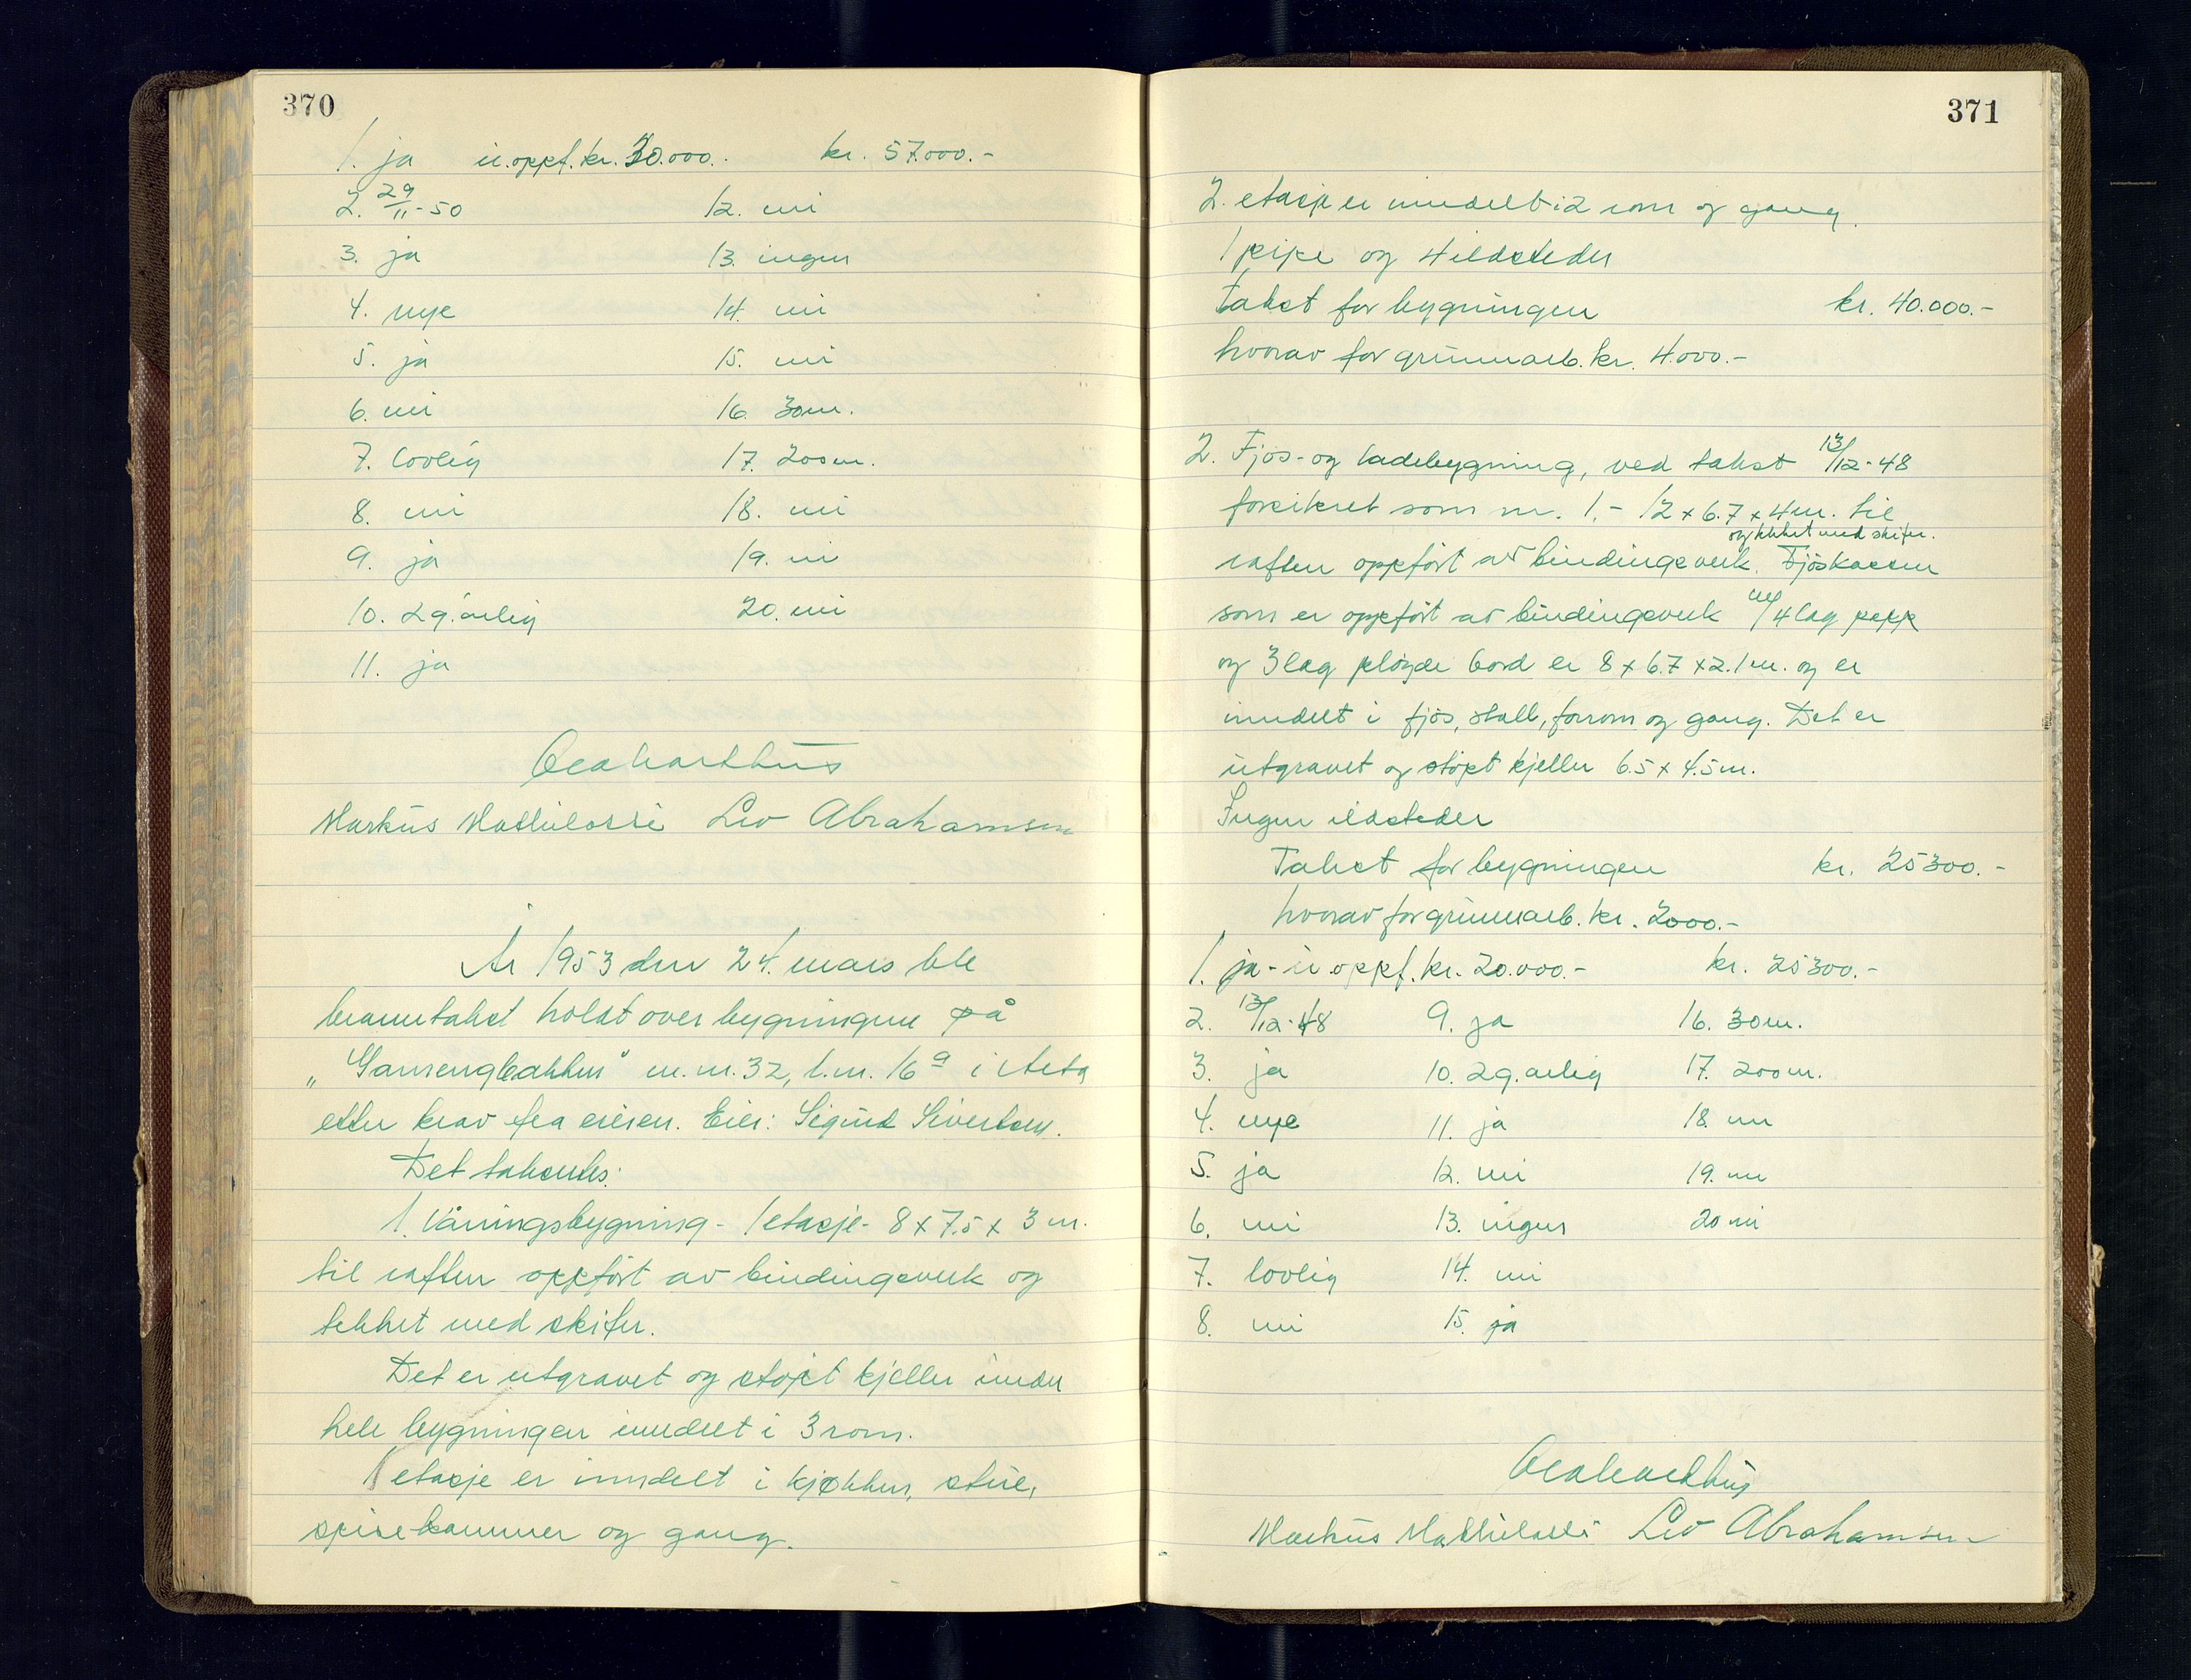 370
1. ja u. oppf. kr. 30.000.. kr. 57.000.-
2. 29/11-50 12. nei
3. ja 13. ingen
4. mye 14. nei
5. ja 15. nei
6. nei 16. 30 m.
7. lovlig 17. 200 m.
8. nei 18. nei
9. ja 19. nei
10. 2 g. årlig 20. nei
11. ja
Markus Leo Abrahamsen
År 1953 den 24. mars ble
branntakst holdt over bygningene på
g.nr. 32, b.nr. 16a i Alta
etter krav fra eieren. Eier: Sigurd Sivertsen.
Det takseres:
1. Våningsbygning - 1 etasje - 8 x 7.5 x 3 m.
til raften oppført av bindingsverk og
tekket med skifer.
Det er utgravet og støpt kjeller under
hele bygningen inndelt i 3 rom.
1 etasje er inndelt i kjøkken, stue,
spisekammer og gang.
371
2. etasje er inndelt i 2 rom og gang.
1 pipe og 4 ildsteder
Takst for bygningen kr. 40.000.-
hvorav for grunnarb. kr. 4.000.-
2. Fjøs- og ladebygning, ved takst 13/12-48
forsikret som nr. 1. - 12 x 6.7 x 4 m. til
og tekket med skifer.
raften oppført av bindingsverk. Fjøskassen
som er oppført av bindingsverk m/ 4 lag papp
og 3 lag pløyde bord er 8 x 6.7 x 2.1 m. og er
inndelt i fjøs, stall, forrom og gang. Det er
utgravet og støpt kjeller 6.5 x 4.5 m.
Ingen ildsteder
Takst for bygningen kr. 25300.-
hvorav for grunnarb. kr. 2000.-
1. ja - u. oppf. kr. 20.000.- kr. 25300.-
2. 13/12-48 9. ja 16. 30 m.
3. ja 10. 2 g. årlig 17. 200 m.
4. mye 11. ja 18. nei
5. ja 12. nei 19. nei
6. nei 13. ingen 20 nei
7. lovlig 14. nei
8. nei 15. ja
Markus Leo Abrahamsen